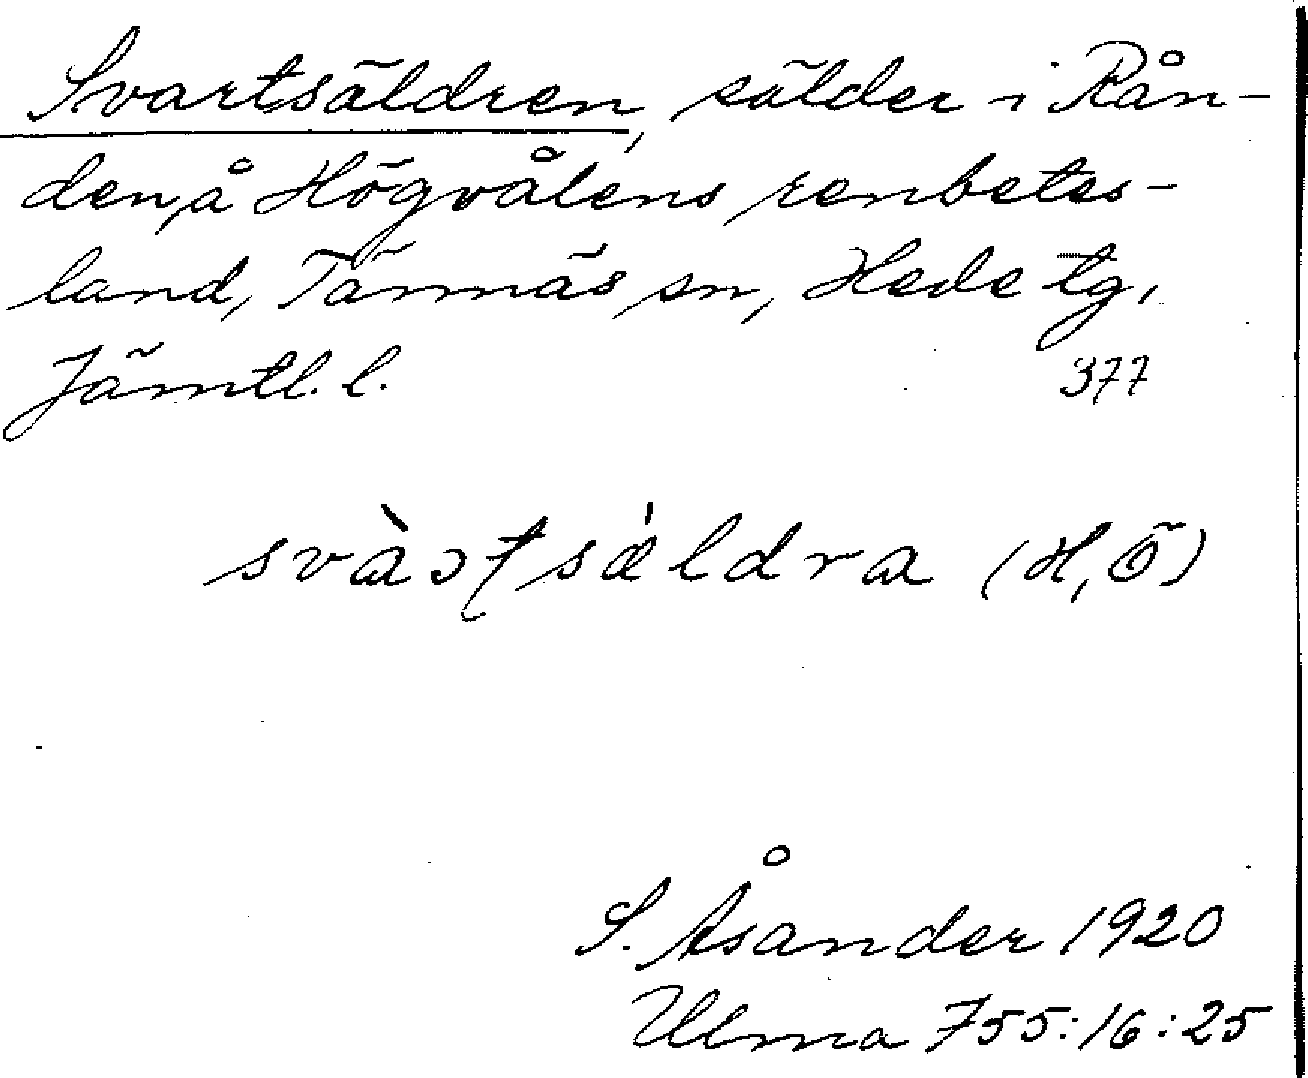 Svartsäldren, sälder i Rån-
den, å Högvålens renbetes-
land, Tännäs sn, Hede tg,
Jämtl. l. 377
sælldra (H, Ö)
S. Åsander 1920
Ulma 755:16:25